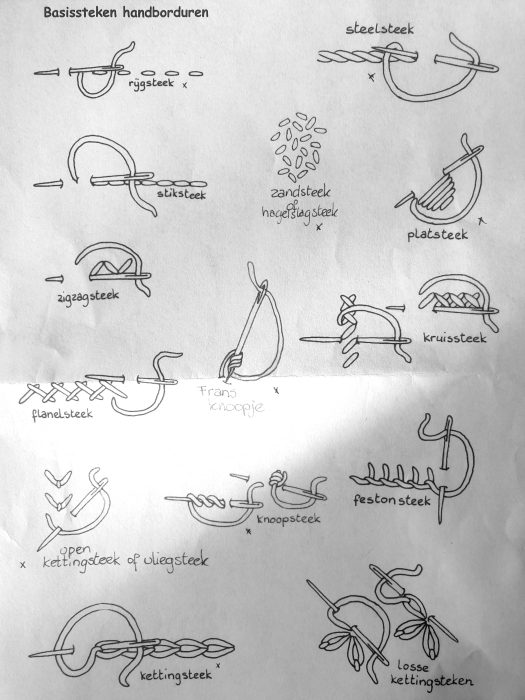 Basissteken handborduren
steelsteek
x
rijgsteek x
stiksteek
zandsteek
of
hagelslagsteek
x
platsteek
x
zigzagsteek
kruissteek
Frans
knoopje
x
flanelsteek
festonsteek
knoopsteek
x
open
x kettingsteek of vliegsteek
kettingsteek x
losse
kettingsteken